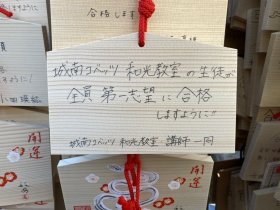 合格します
城南コベッツ 和光教室の生徒が
全員 第一志望に合格
しますように!!
城南コベッツ 和光教室 講師一同
ように
開運
開運